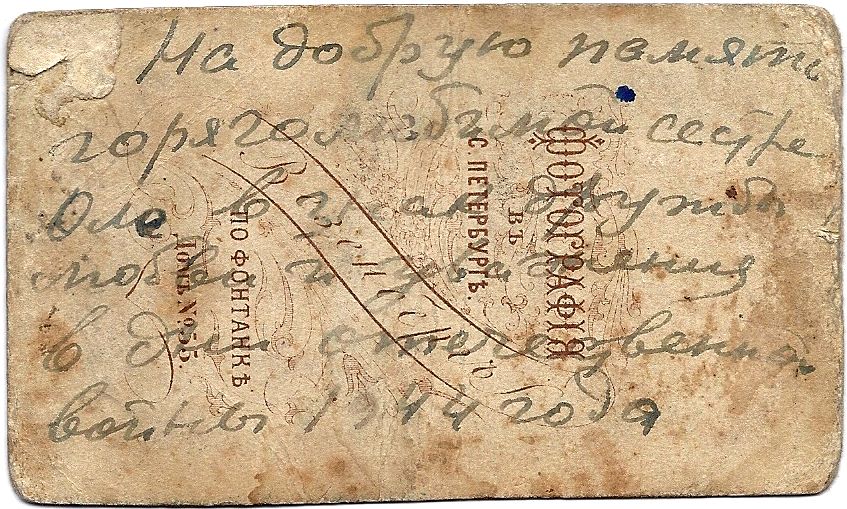 На добрую память
горяголюбимой сестре
Оле в знак дружбы,
любви и уважения
в дни отечественной
войны 1944 года
ФОТОГРАФІЯ
ВЪ
С. ПЕТЕРБУРГѢ.
ПО ФОНТАНКѢ
Домъ № 55